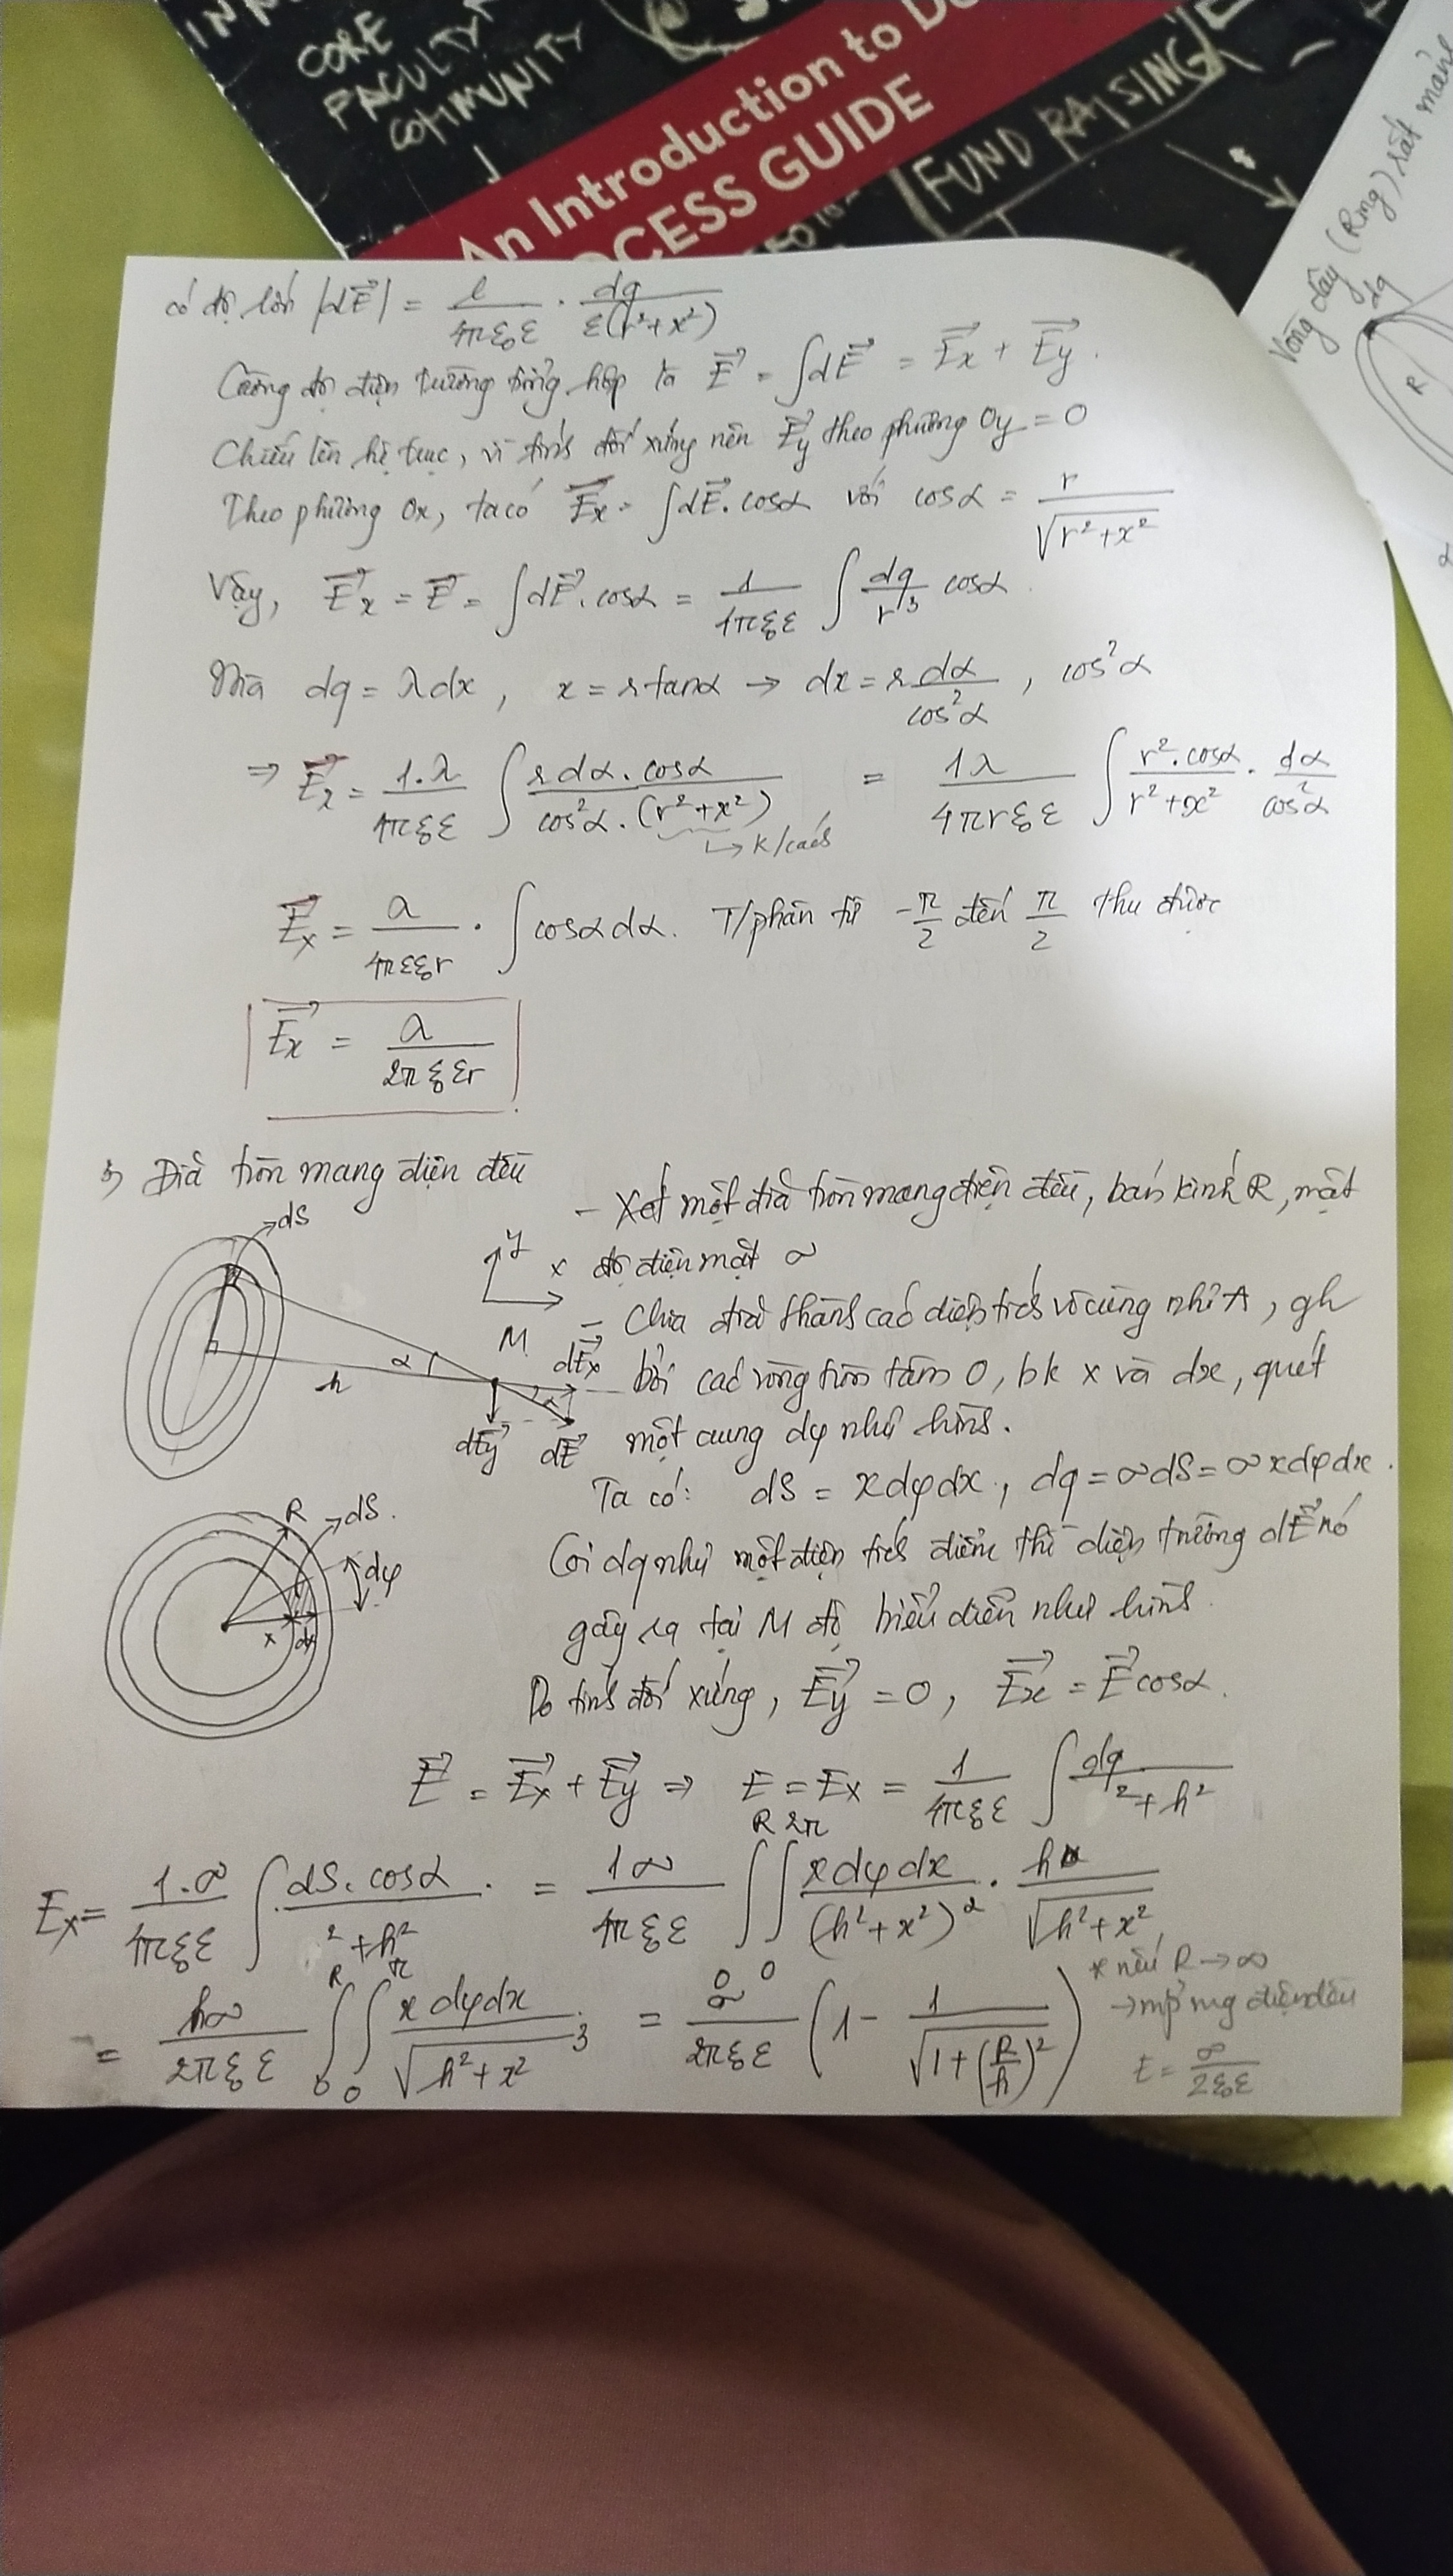 CORE
FACULTY
COMMUNITY
An Introduction to D
OCESS GUIDE
FUND RAISING
Vòng dây (Ring) rất mảnh
dq
R
có độ lớn |dE⃗| = 1/(4πε₀ε) · dq/(ε(r²+x²))
Cường độ điện trường tổng hợp là E⃗ = ∫dE⃗ = E⃗x + E⃗y.
Chiếu lên hệ trục, vì tính đối xứng nên E⃗y theo phương Oy = 0
Theo phương Ox, ta có E⃗x = ∫dE⃗.cosα với cosα = r/√(r²+x²)
Vậy, E⃗x = E⃗ = ∫dE⃗.cosα = 1/(4πε₀ε) ∫ dq/r³ cosα
Mà dq = λdx, x = r tanα → dx = r dα/cos²α, cos²α
⇒ E⃗x = 1.λ/(4πε₀ε) ∫ r dα.cosα/(cos²α.(r²+x²)) = 1λ/(4πrε₀ε) ∫ r².cosα/(r²+x²) · dα/cos²α
↳ k/cách
E⃗x = λ/(4πεε₀r) · ∫cosαdα. T/phân từ -π/2 đến π/2 thu được
E⃗x = λ/(2πε₀εr)
Đĩa tròn mang điện đều
dS
y
x
M
α
h
dE⃗x
dE⃗y
dE⃗
- Xét một đĩa tròn mang điện đều, bán kính R, mật
độ điện mặt σ
- Chia đĩa thành các diện tích vô cùng nhỏ, gh
bởi các vòng tròn tâm O, bk x và dx, quét
một cung dφ như hình.
Ta có: dS = xdφdx, dq = σdS = σxdφdx.
R
dS.
dφ
x
dx
Coi dq như một điện tích điểm thì điện trường dE⃗ nó
gây ra tại M đc biểu diễn như hình.
Do tính đối xứng, E⃗y = 0, E⃗x = E⃗cosα.
E⃗ = E⃗x + E⃗y ⇒ E = Ex = 1/(4πε₀ε) ∫ dq/(²+h²)
Ex = 1.σ/(4πε₀ε) ∫ dS.cosα/(²+h²) = 1σ/(4πε₀ε) ∫₀ᴿ∫₀²π xdφdx/(h²+x²)² · h/√(h²+x²)
= hσ/(2πε₀ε) ∫₀ᴿ∫₀π xdφdx/√(h²+x²)³ = σ/(2πε₀ε) (1 - 1/√(1+(R/h)²))
* nếu R → ∞
→ mp mg điện đều
E = σ/(2ε₀ε)